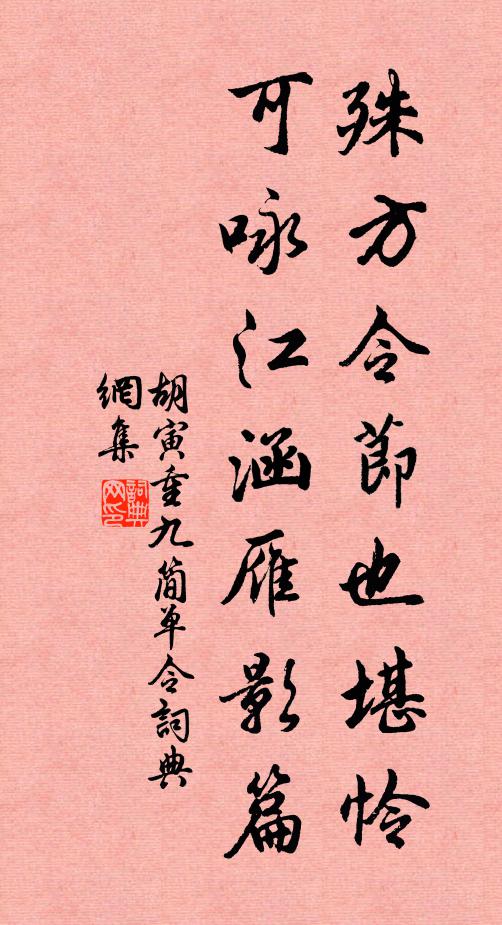 殊方令節也堪怜
可咏江涵雁影篇
胡寅重九簡單令詞典
網集
詞典网印